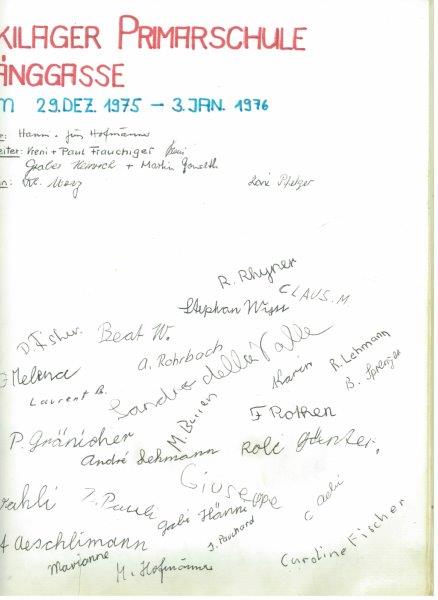 KILAGER PRIMARSCHULE
ÄNGGASSE
M 29. DEZ. 1975 — 3. JAN. 1976
e: Hann. Jürg Hofmann
eiter: Vreni + Paul Frauchiger
Graber Heinrich + Martin
in: Merz Loni Pfelger
R. Rhyner
CLAUS. M
Stephan Wyss
D. Fisher. Beat W.
A. Rohrbach
Sandro della Valle
R. Lehmann
Melena
Karin
B. Sprenger
Laurent B.
M. Burren
F Rothen
P. Gränicher
André Lehmann
Roli Günter.
Giuseppe
ahli Z. Pauli
Gabi Hänni
C Aebi
J. Pauchard
A Aeschlimann
Caroline Fischer
Marianne
M. Hofmänner